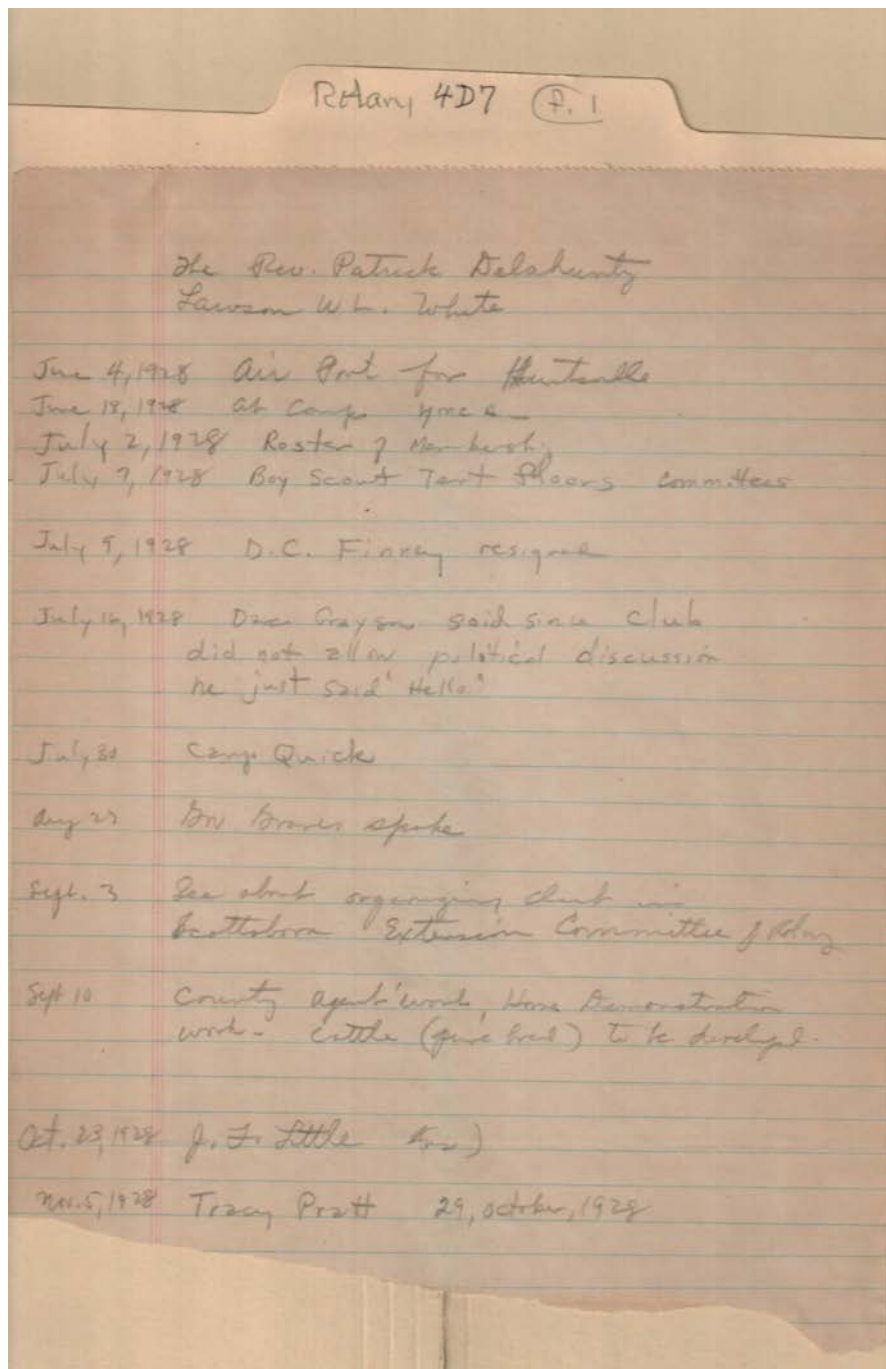 Rotary 4D7 P. 1
The Rev. Patrick Delahunty
Lawson W L. White
June 4, 1928 Air Port for Huntsville
June 18, 1928 at Camp ymca
July 2, 1928 Roster of Membership
July 7, 1928 Boy Scout Tent floors committees
July 9, 1928 D.C. Finney resigned
July 16, 1928 Dave Grayson said since club
did not allow political discussion
he just said "Hello"
July 30 Camp Quick
Aug 27 Gov Graves spoke
Sept. 3 See about organizing club in
Scottsboro Extension Committee of Rotary
Sept 10 County agent' work, Home Demonstration
work - cattle (pure bred) to be developed.
Oct. 23, 1928 J. F. Little
Nov. 5, 1928 Tracy Pratt 29, October, 1928